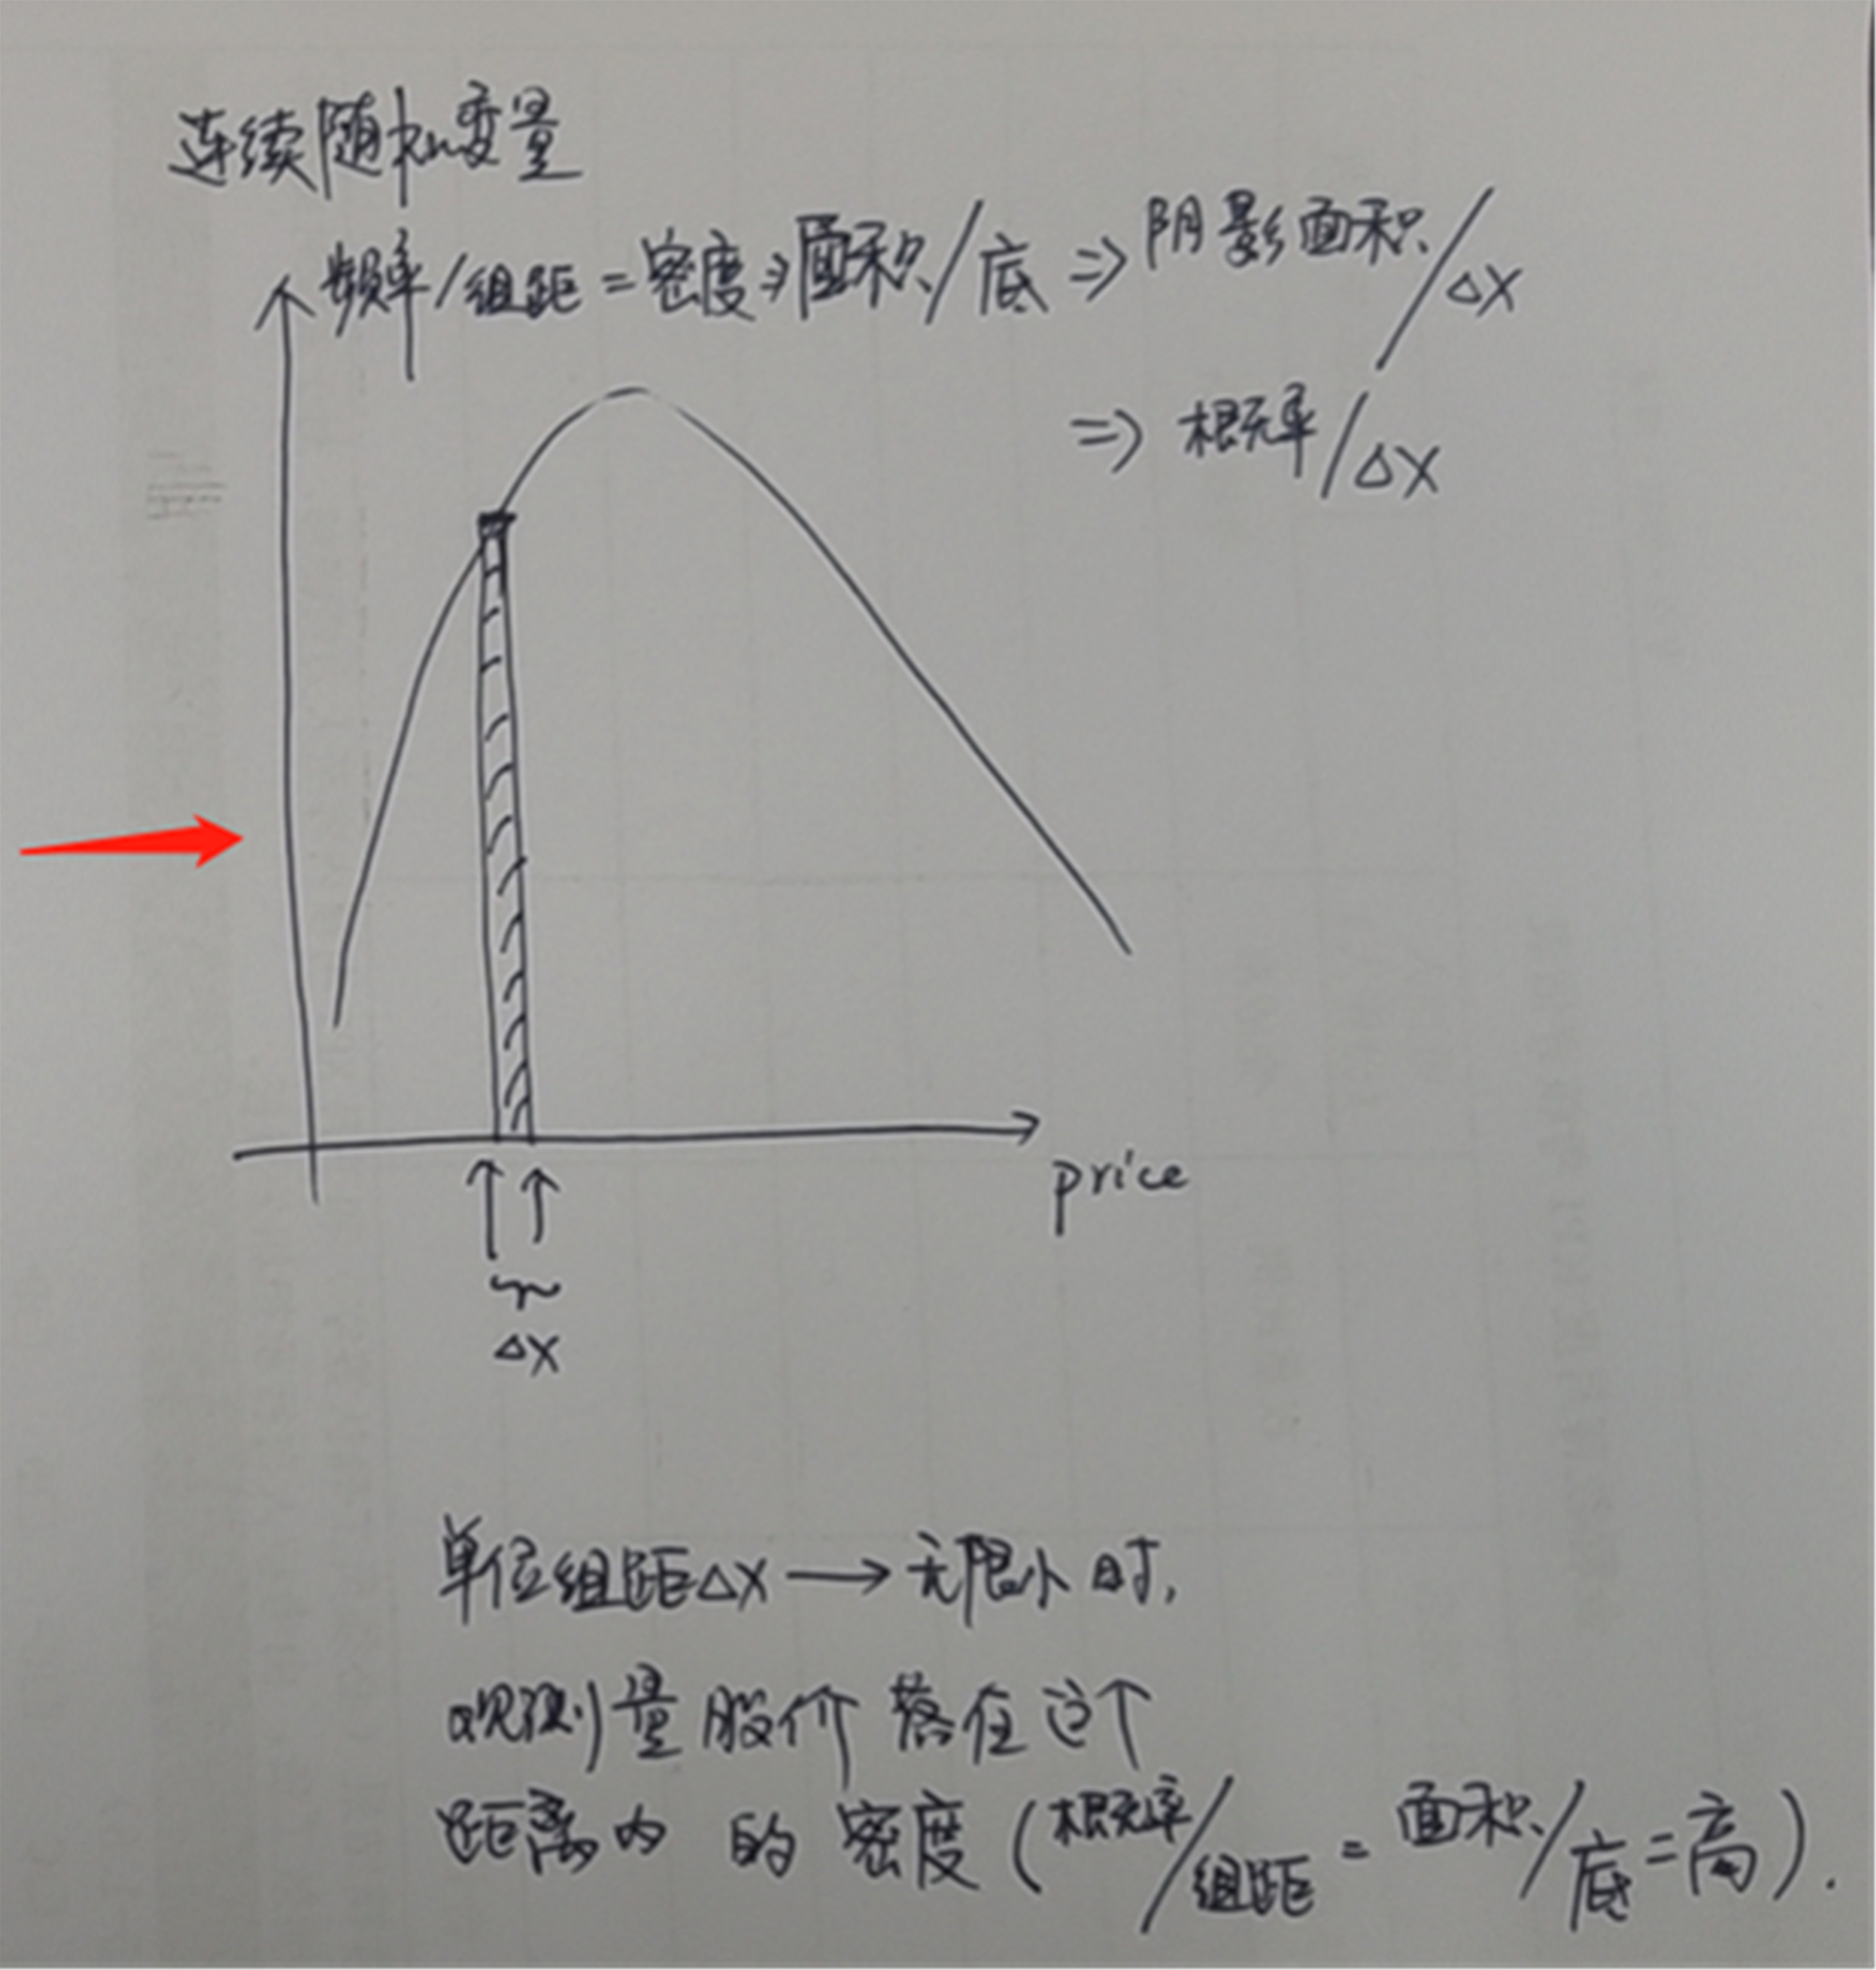 连续随机变量
频率/组距 = 密度 => 面积/底 => 阴影面积/△X
=> 概率/△X
price
△X
单位组距△X → 无限小时,
观测量股价落在这个
距离内的密度 (概率/组距 = 面积/底 = 高).